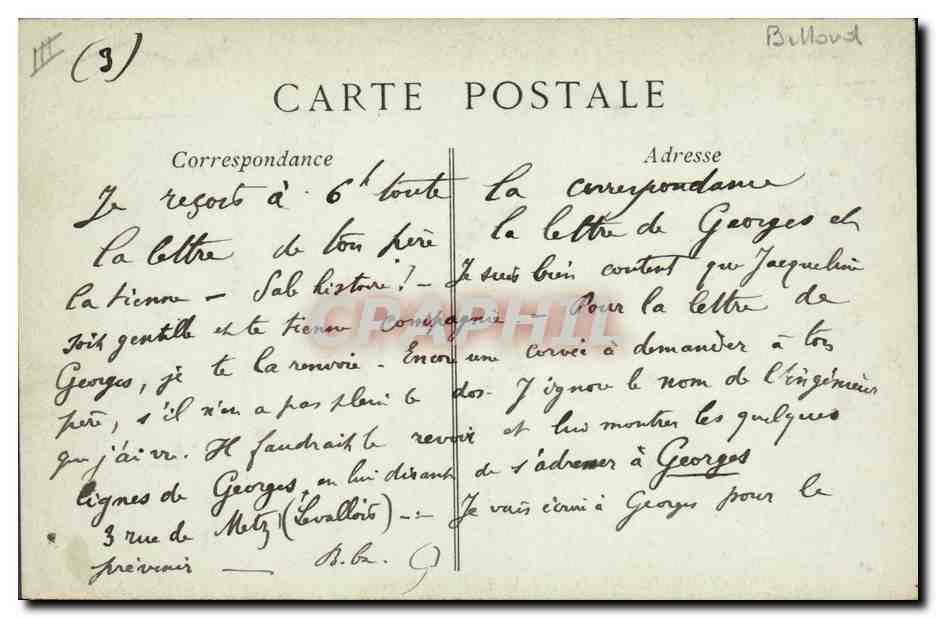 III (3) Billoud
CARTE POSTALE
Correspondance Adresse
Je reçois à 6h toute la correspondance
la lettre de ton père la lettre de Georges et
la tienne — Sale histoire! — Je suis bien content que Jacqueline
soit gentille et te tienne compagnie — Pour la lettre de
Georges, je te la renvoie. Encore une corvée à demander à ton
père, s'il n'en a pas plein le dos. J'ignore le nom de l'ingénieur
que j'ai vu. Il faudrait le revoir et lui montrer les quelques
lignes de Georges, en lui disant de s'adresser à Georges
3 rue de Metz (Levallois) — Je vais écrire à Georges pour le
prévenir —
CPAPHIL